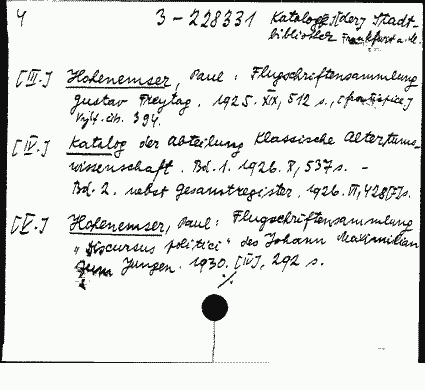 4 3-228331 Kataloge [der] Stadt-
bibliothek Frankfurt a.M.
[III.] Hohenemser, Paul: Flugschriftensammlung
Gustav Freytag. 1925. XIX, 512 s., [frontispice]
394.
[IV.] Katalog der Abteilung Klassische Altertums-
wissenschaft. Bd. 1. 1926. X, 537 s. -
Bd. 2. nebst Gesamtregister. 1926. VI, 428 s.
[V.] Hohenemser, Paul: Flugschriftensammlung
"Discursus politici" des Johann Maximilian
zum Jungen. 1930. [IV], 292 s.
%